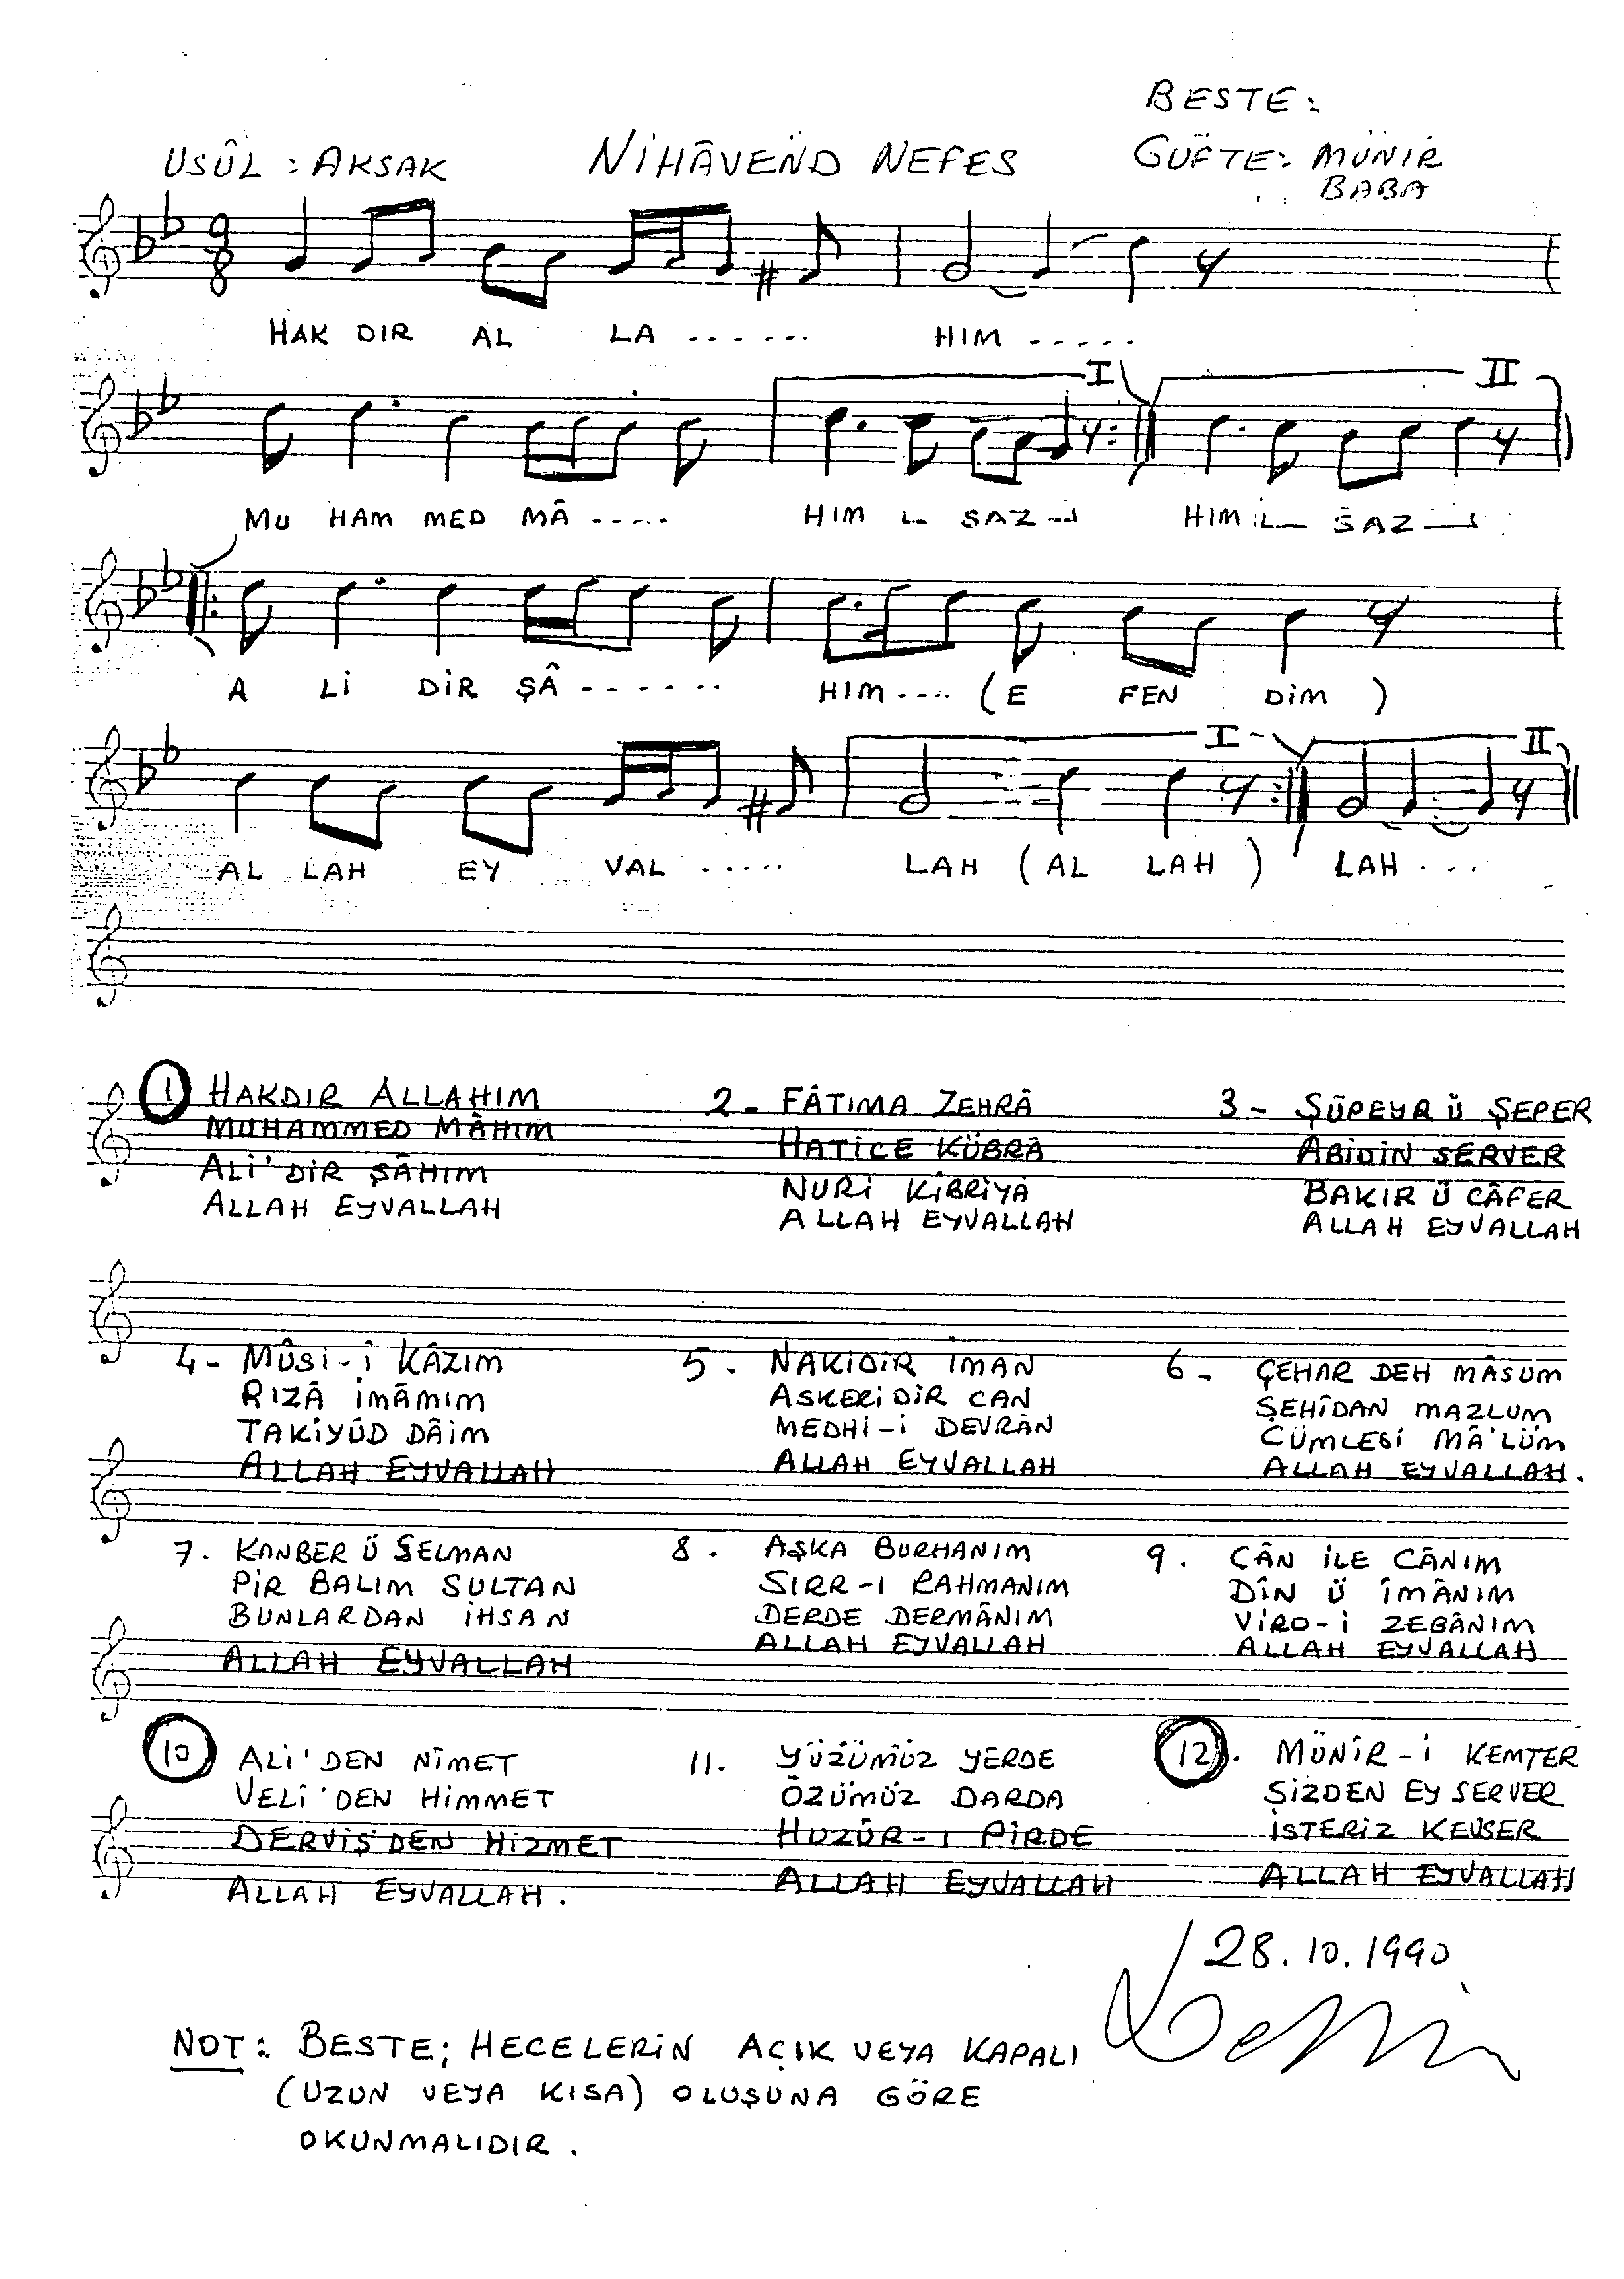 BESTE:
USÛL : AKSAK NİHÂVEND NEFES GÜFTE: MÜNİR
BABA
9
8
HAK DIR AL LA ...... HIM .....
I II
MU HAM MED MÂ ..... HIM SAZ HIM SAZ
A Lİ DİR ŞÂ ....... HIM .... (E FEN DİM)
I II
AL LAH EY VAL ..... LAH (AL LAH) LAH ...
1 HAKDIR ALLAHIM
MUHAMMED MÂHIM
ALİ'DİR ŞÂHIM
ALLAH EYVALLAH
2 - FÂTIMA ZEHRÂ
HATİCE KÜBRÂ
NURİ KİBRİYÂ
ALLAH EYVALLAH
3 - ŞÜPEYR Ü ŞEPER
ABİDİN SERVER
BAKIR Ü CÂFER
ALLAH EYVALLAH
4 - MÛSİ-Î KÂZIM
RIZÂ İMÂMIM
TAKİYÜD DÂİM
ALLAH EYVALLAH
5 - NAKİDİR İMAN
ASKERİDİR CAN
MEDHİ-İ DEVRÂN
ALLAH EYVALLAH
6 - ÇEHAR DEH MÂSUM
ŞEHÎDAN MAZLUM
CÜMLESİ MÂ'LÜM
ALLAH EYVALLAH.
7. KANBER Ü SELMAN
PİR BALIM SULTAN
BUNLARDAN İHSAN
ALLAH EYVALLAH
8. AŞKA BURHANIM
SIRR-I RAHMANIM
DERDE DERMÂNIM
ALLAH EYVALLAH
9. CÂN İLE CÂNIM
DÎN Ü ÎMÂNIM
VİRD-İ ZEBÂNIM
ALLAH EYVALLAH
10 ALİ'DEN NÎMET
VELİ'DEN HİMMET
DERVİŞ'DEN HİZMET
ALLAH EYVALLAH.
11. YÜZÜMÜZ YERDE
ÖZÜMÜZ DARDA
HUZÛR-I PİRDE
ALLAH EYVALLAH
12. MÜNİR-İ KEMTER
SİZDEN EY SERVER
İSTERİZ KEVSER
ALLAH EYVALLAH
28.10.1990
NOT: BESTE; HECELERİN AÇIK VEYA KAPALI
(UZUN VEYA KISA) OLUŞUNA GÖRE
OKUNMALIDIR.